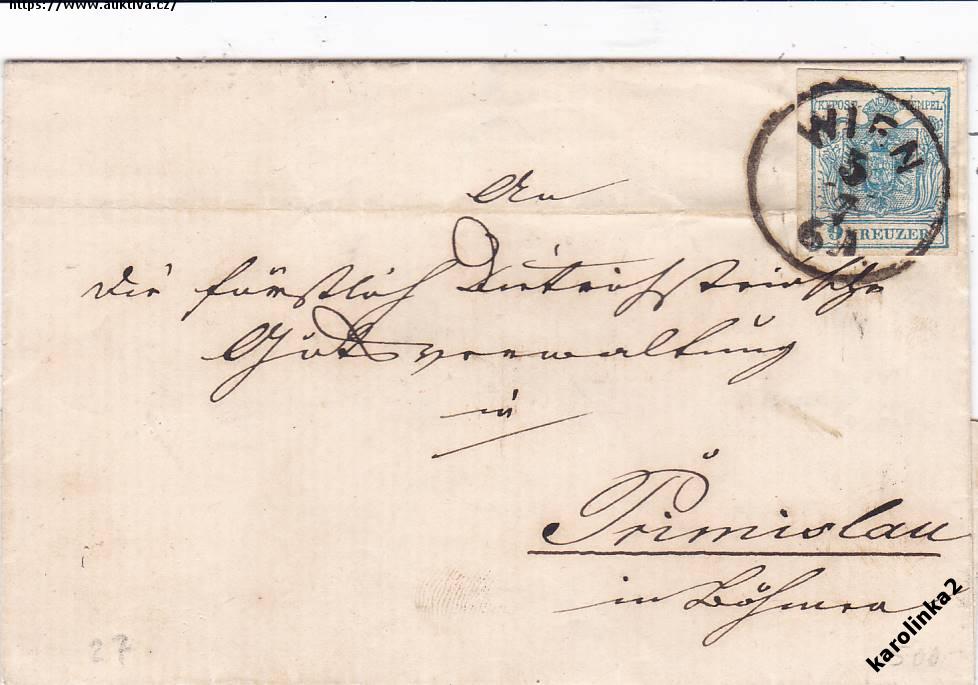 https://www.auktiva.cz/
KKPOST-STEMPEL
WIEN
9 KREUZER
An
die fürstlich Dietrichstein'sche
Gutsverwaltung
in
Primislau
in Böhmen
27
karolinka2